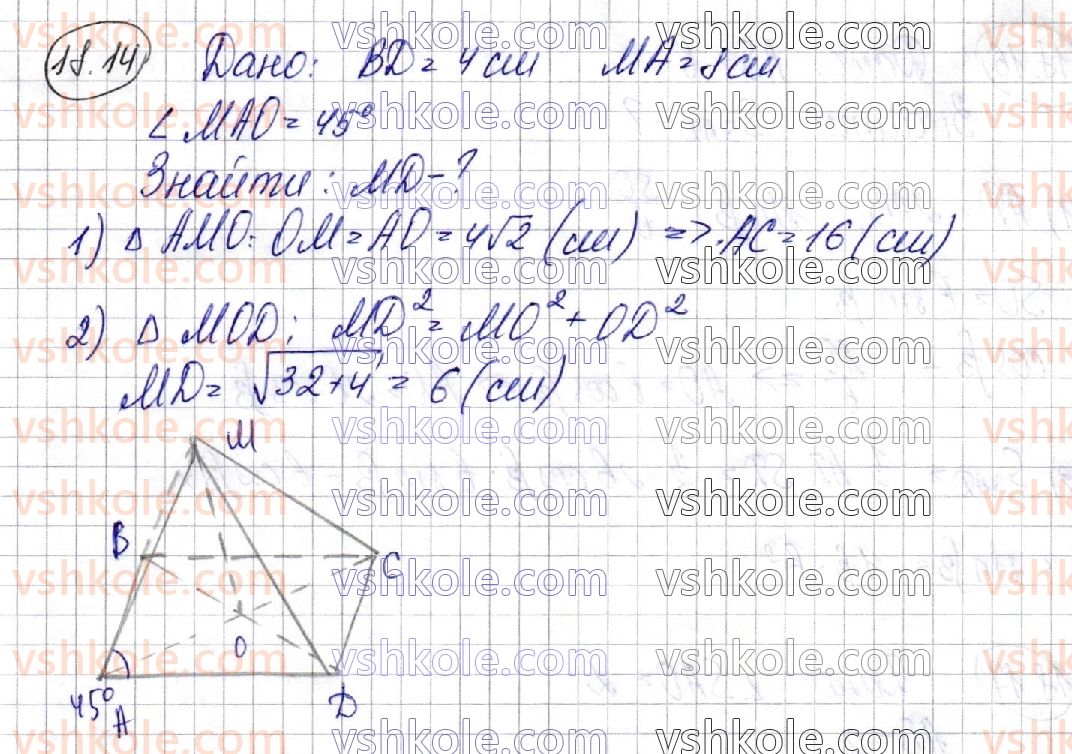 18.14 Дано: BD = 4 см MA = 8 см
∠ MAO = 45°
Знайти: MD - ?
1) Δ AMO: OM = AO = 4√2 (см) => AC = 16 (см)
2) Δ MOD: MD² = MO² + OD²
MD = √32+4 = 6 (см)
M
B
C
O
45° A
D
vshkole.com